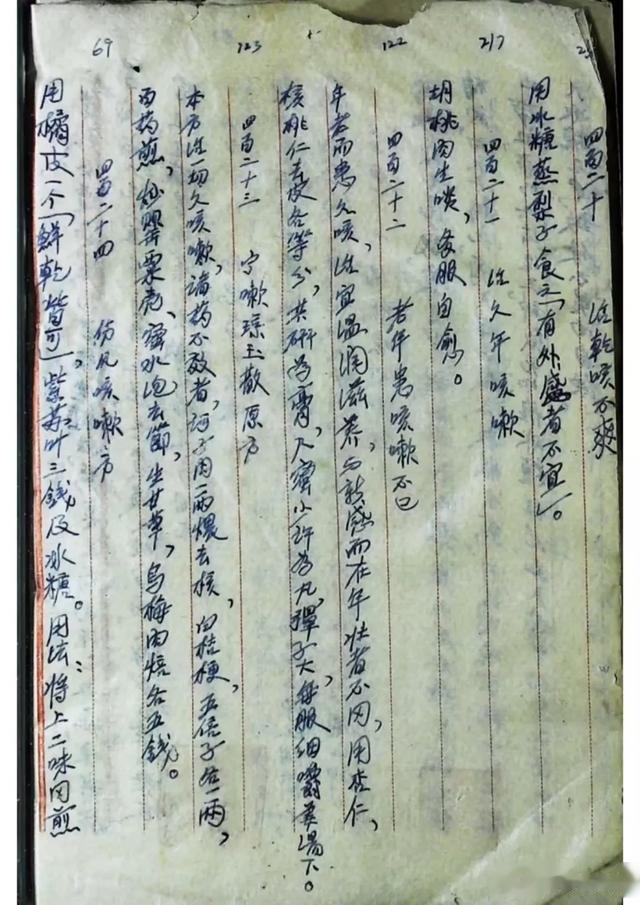 四百二十 治乾咳不爽
用冰糖蒸梨子食之「有外感者不宜」。
217
四百二十一 治久年咳嗽
胡桃肉生啖，多服自愈。
122
四百二十二 老年患咳嗽不已
年老而患久咳，治宜温润滋养，与新感而在年壮者不同，用杏仁，
核桃仁去皮各等分，共研为膏，入蜜少许为丸，弹子大，每服细嚼姜汤下。
123
四百二十三 宁嗽琼玉散原方
本方治一切久咳嗽，诸药不效者，诃子用一两煨去核，白桔梗，五倍子各一两，
罂粟壳、蜜水泡去筋，生甘草，乌梅肉焙各五钱。
69
四百二十四 伤风咳嗽方
用橘皮一个「鲜乾皆可」，紫苏叶三钱及冰糖。用法：将上二味同煎